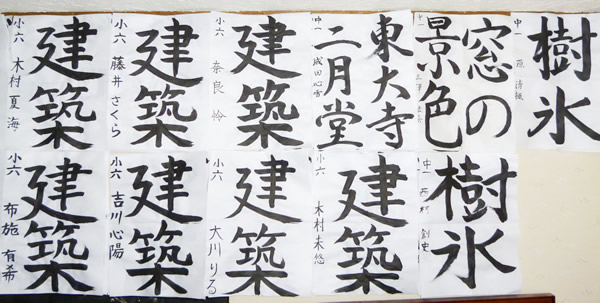 樹氷
中一
窓の
景色
中一
東大寺
二月堂
中一 成田心
建築
小六 奈良 怜
建築
小六 藤井さくら
建築
小六 木村夏海
樹氷
中一 西村 創史
建築
小六 木村未悠
建築
小六 大川りる
建築
小六 吉川心陽
建築
小六 布施 有希